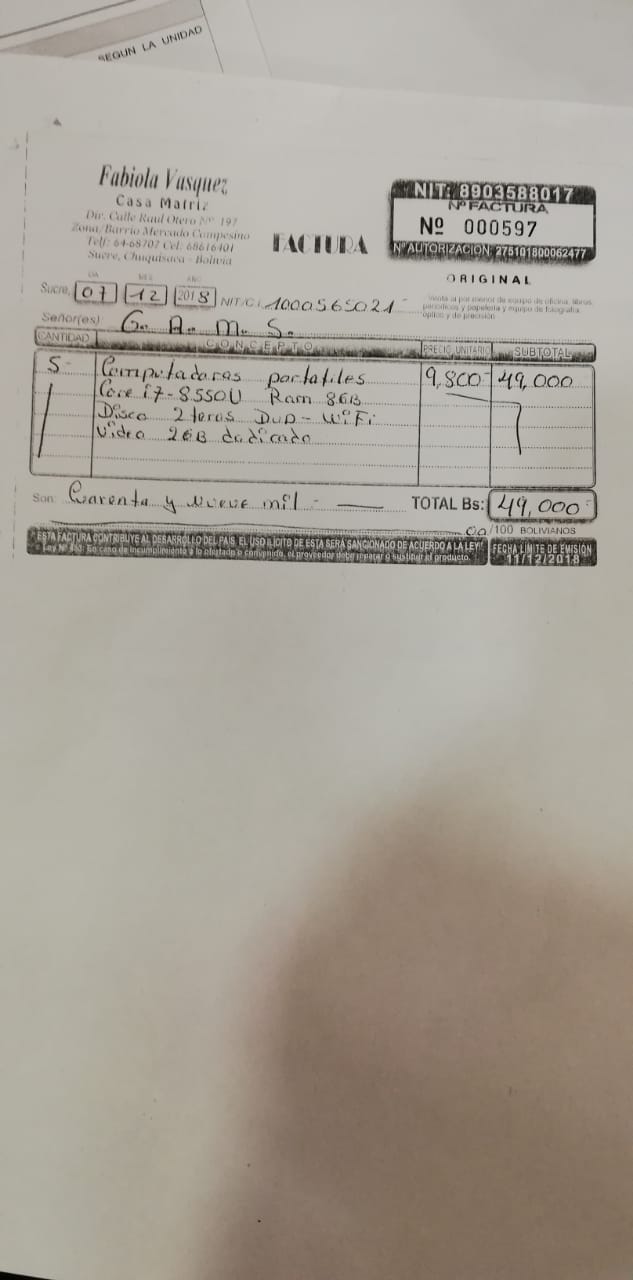 SEGUN LA UNIDAD
Fabiola Vasquez
Casa Matriz
Dir. Calle Raul Otero Nº 197
Zona/Barrio Mercado Campesino
Telf: 64-68707 Cel: 68616401
Sucre, Chuquisaca - Bolivia
FACTURA
NIT: 8903588017
Nº FACTURA
Nº 000597
Nº AUTORIZACION: 275101800062477
ORIGINAL
Venta al por menor de equipo de oficina, libros,
periódicos y papelería y equipo de fotografía
óptico y de precisión
DIA MES AÑO
Sucre, 07 12 2018 NIT/C.I. 1000565021-
Señor(es): G. A. M. S.
CANTIDAD CONCEPTO PRECIO UNITARIO SUBTOTAL
5- Computadoras portatiles 9,800- 49,000
Core i7-8550U Ram 8GB
Disco 2 teras DVD-WiFi
Video 2GB dedicado
Son: Carenta y nueve mil - TOTAL Bs: 49,000-
00/100 BOLIVIANOS
"ESTA FACTURA CONTRIBUYE AL DESARROLLO DEL PAIS. EL USO ILICITO DE ESTA SERA SANCIONADO DE ACUERDO A LA LEY"
Ley Nº 453: En caso de incumplimiento a lo ofertado o convenido, el proveedor debe reparar o sustituir el producto.
FECHA LIMITE DE EMISIÓN
11/12/2018